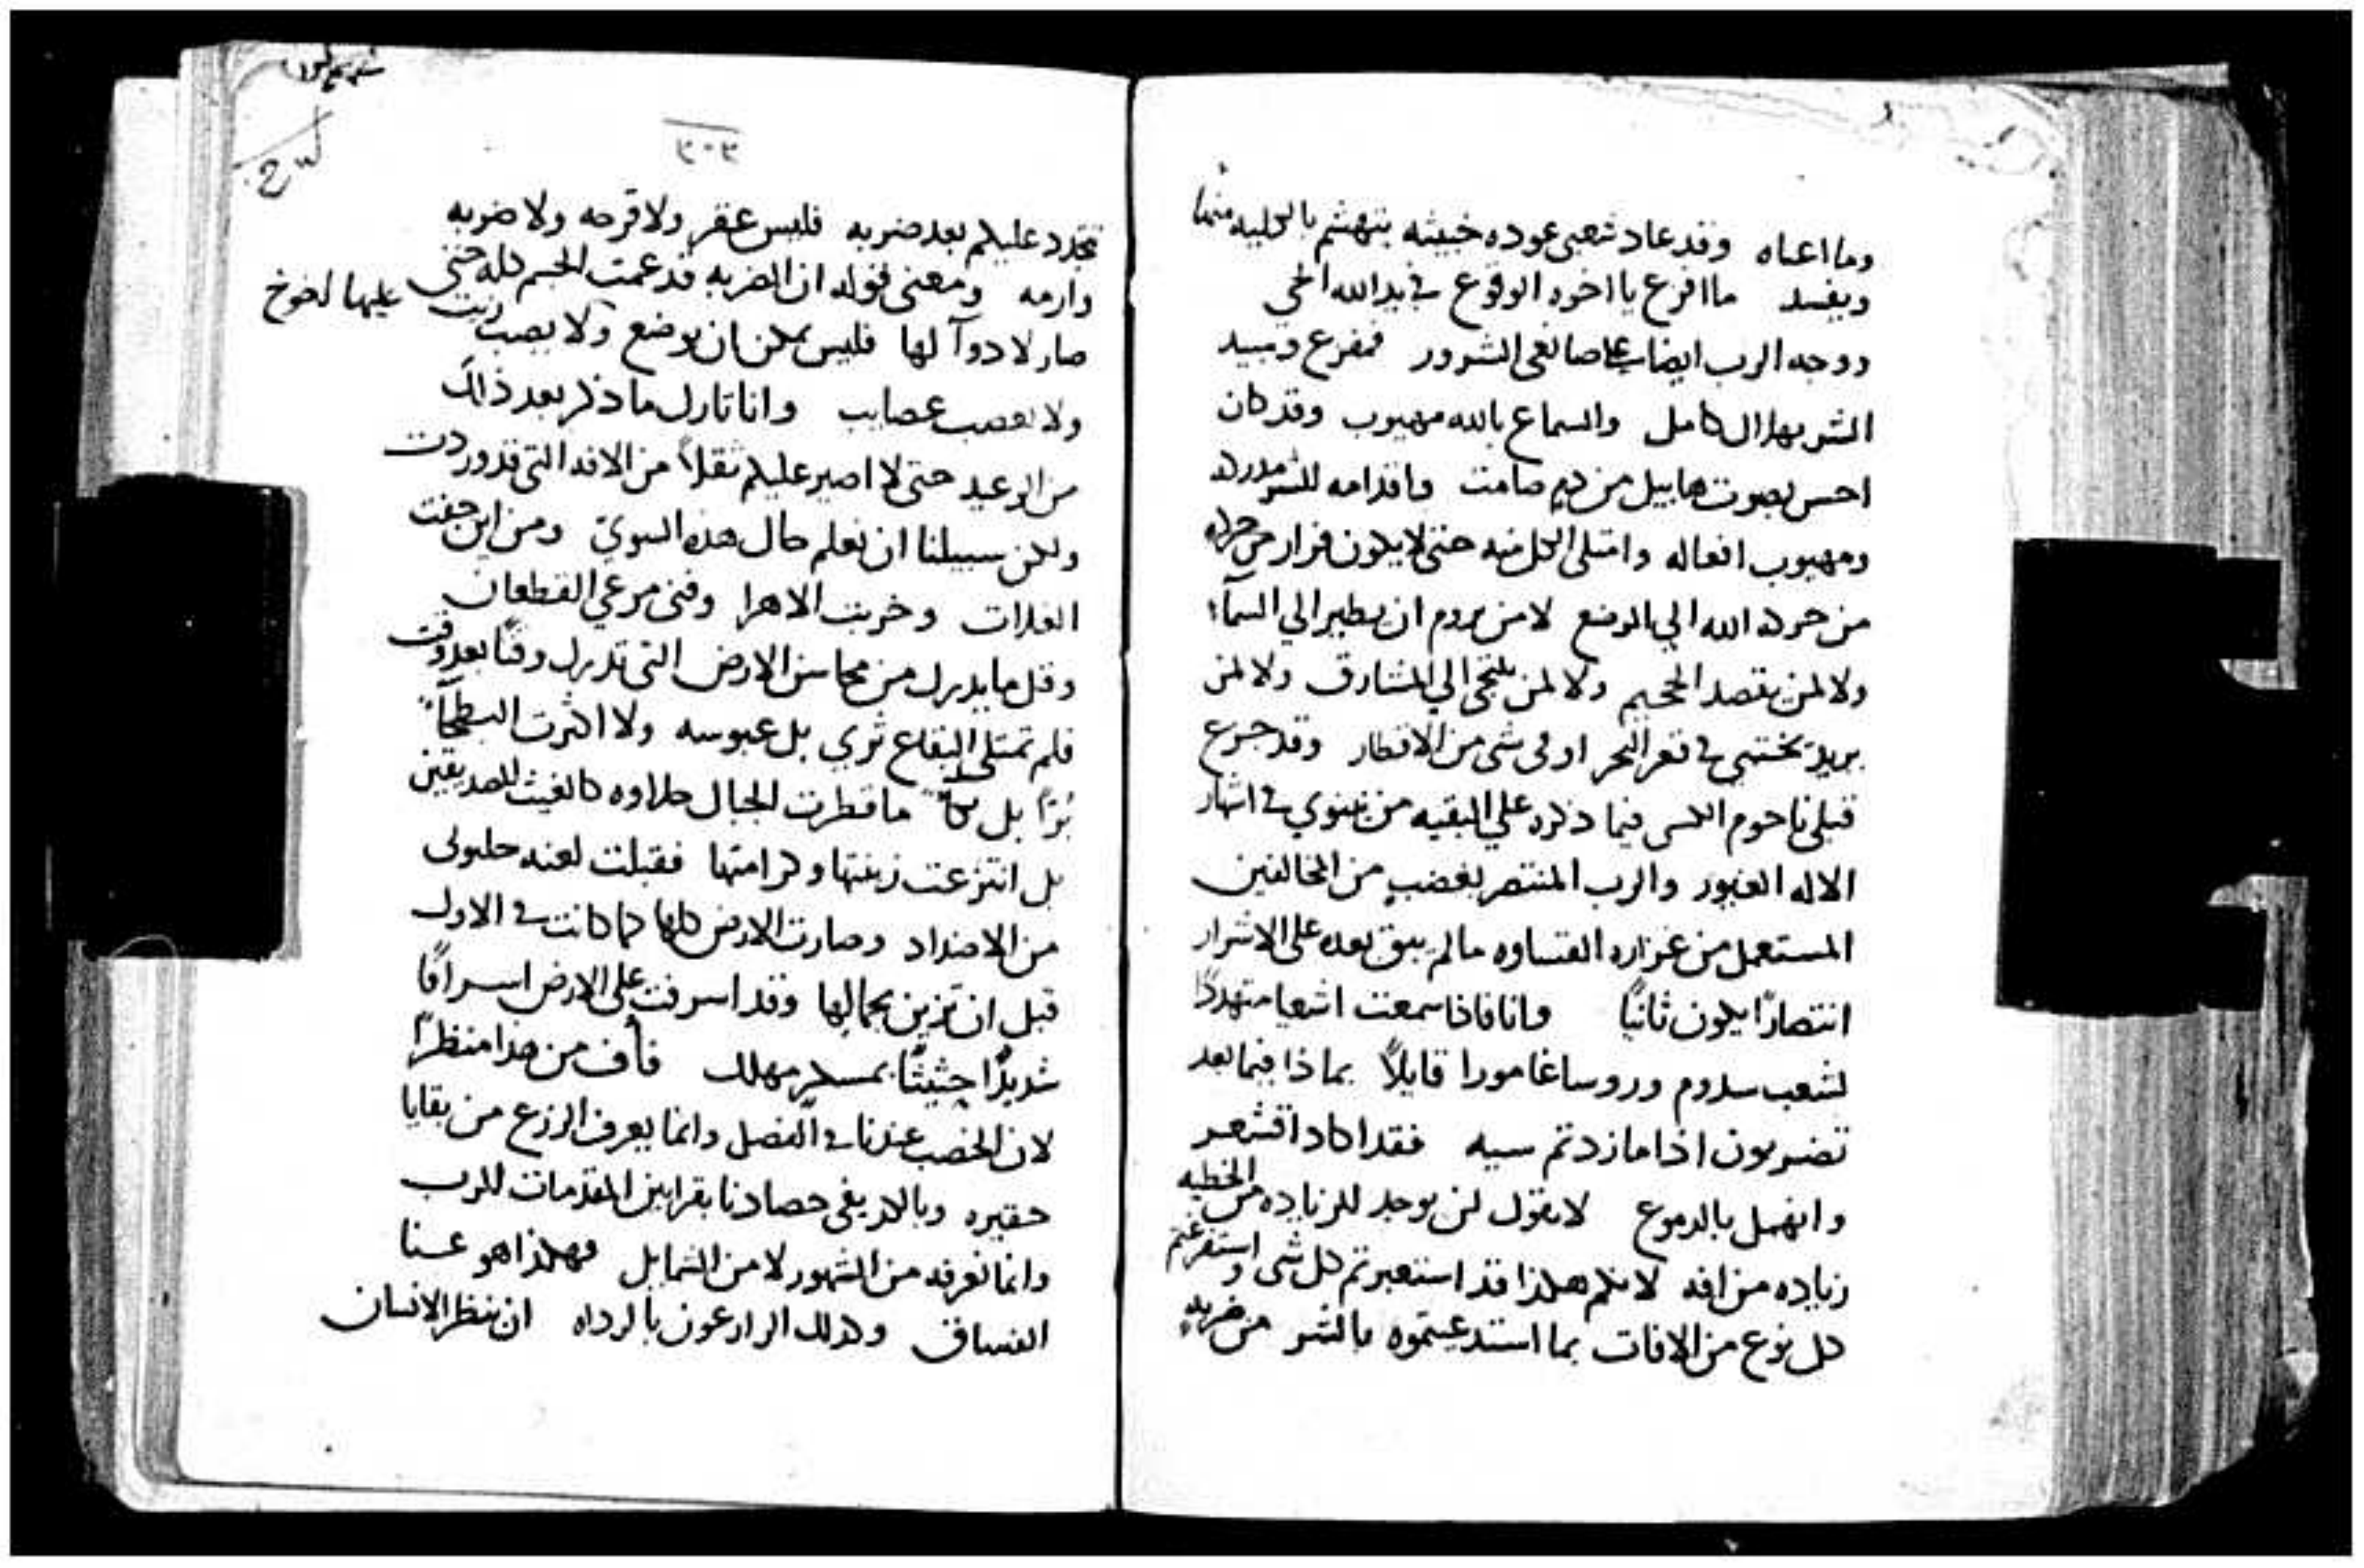 وما اعىاه وقد عاد شعبى عوده خبيثه يتهشم بالكليه منها
ويفسد ما افزع يا اخوه الوقوع في يد الله الحي
ووجه الرب ايضا على صانعى الشرور فمفزع ومبيد
الشر بهلاك كامل والسماع بالله مهبوب وقد كان
احس بصوت هابيل من دم صامت واقدامه للشر مدركه
ومهبوب افعاله وامتلى الكل منه حتى لا يكون فرار من حركه
من حركه الله الي الوضع لا من يروم ان يطير الي السمآء
ولا لمن يقصد الجحيم ولا لمن يلتجى الي المشارق ولا لمن
يريد يختبي في قعر البحر او في شى من الاقطار وقد جزع
قبلي ناحوم فيما ذكره علي البقيه من نينوي في اشهار
الاله الغيور والرب المنتصر بغضب من المخالفين
المستعمل من غزاره القساوه ما لم يبق بعده على الاشرار
انتصارًا يكون ثانيًا وانا فاذا سمعت اشعيا متهددًا
لشعب سدوم وروسا غامورا قايلاً بماذا فيما بعد
تضربون اذا ما زدتم سيه فقد اكاد اقشعر
وانهمل بالدموع لا يقول لن يوجد للزياده من الخطيه
زياده من افه لانكم هكذا قد استعبرتم كل شى واستفرغتم
كل نوع من الافات بما استدعيتموه بالشر من ضربه
٣٠٣
تتجدد عليكم بعد ضربه فليس عقر ولا قرحه ولا ضربه
وارمه ومعنى قوله ان الضربه قد عمت الجسم كله حتى
صار لا دوآ لها فليس يمكن ان يوضع عليها لخوخ ولا يصب زيت
ولا تعصب عصايب وانا تارك ما ذكر بعد ذالك
من الوعيد حتى لا اصير عليكم ثقلاً من الافه التي قد وردت
ولكن سبيلنا ان نعلم حال هذه البلوي ومن اين جفت
الغلات وخربت الاهرا وفنى مرعي القطعان
وقل ما يدرك من محاسن الارض التى تدرك وقتًا بعد وقت
فلم تمتلى البقاع ثري بل عبوسه ولا اكثرت البطحآء
بُرًا بل ما قطرت الجبال حلاوه كالغيث للصديقين
بل انتزعت زينتها وكرامتها فقبلت لعنه جلبوى
من الاضداد وصارت الارض كلها كما كانت في الاول
قبل ان تزين بجمالها وقد اسرفت على الارض اسرافًا
شديدًا حثيثًا بمسكر مهلك فأف من هذا منظرًا
لان الخصب عندنا في الفصل وانما يعرف الزرع من بقايا
حقيره وبالكد يفى حصادنا بقرابين المقدمات للرب
وانما نعرفه من الشهور لا من الشمايل فهكذا هو غنا
الفساق وكذلك الزارعون بالرداه ان ينظر الانسان